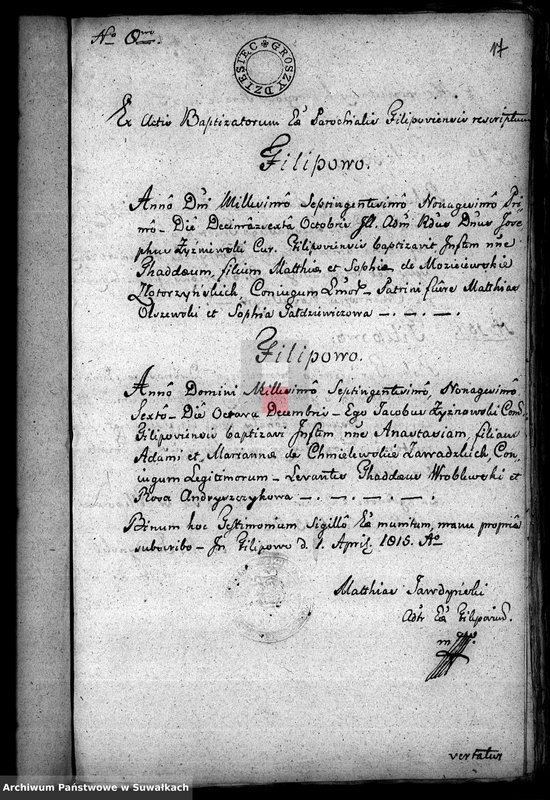 No 8vo.
17
DZIESIEC GROSZY
Ex Actis Baptizatorum Eæ Parochialis Filipoviensis rescriptum
Filipowo.
Anno Dni Millesimô Septingentesimô Nonagesimô Pri-
mô – Die Decimâ sexta Octobris Jll. Adm Rdus Dnus Jose-
phus Żyźniewski Cur. Filipoviensis baptizavit Infem nne
Thaddæum, filium Matthiæ et Sophiæ de
Złotorzyńskich, Coniugum Lmor – Patrini fuere Matthias
Olszewski et Sophia
Filipowo.
Anno Domini Millesimô Septingentesimô, Nonagesimô
Sextô – Die Octava Decembris – Ego Jacobus Com.
Filipoviensis baptizavi Infem nne Anastasiam, filiam
Adami et Mariannæ de Chmielewskie Zawadzkich, Con-
iugum Legitimorum – Levantes Thaddæus Wroblewski et
Rosa Andryszczykowa
Binum hoc Testimonium Sigillô Eæ munitum, manu propria
subscribo – In Filipowo d. 1. Aprilis 1815. Ao
Matthias Jawdyński
Adtr Eæ Filipovien.
mpp.
vertatur
Archiwum Państwowe w Suwałkach